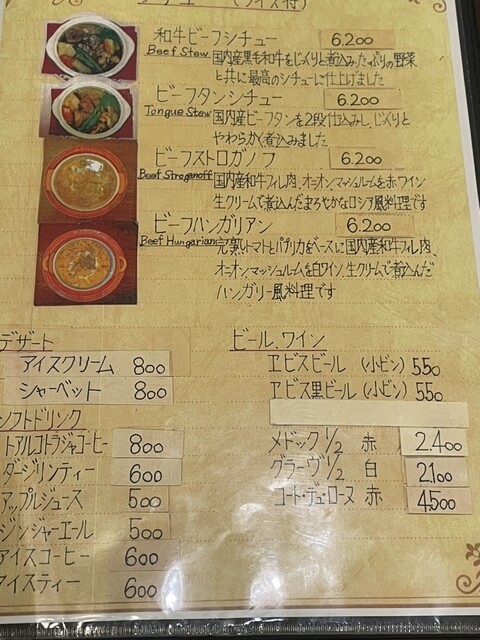 シチュー (ライス付)
和牛ビーフシチュー 6.200
Beef Stew 国内産黒毛和牛をじっくりと煮込み、たっぷりの野菜
と共に最高のシチューに仕上げました
ビーフタンシチュー 6.200
Tongue Stew 国内産ビーフタンを2段仕込みし、じっくりと
やわらかく煮込みました
ビーフストロガノフ 6.200
Beef Stroganoff 国内産和牛フィレ肉、オニオン、マッシュルームを赤ワイン
生クリームで煮込んだまろやかなロシア風料理です
ビーフハンガリアン 6.200
Beef Hungarian 完熟トマトとパプリカをベースに国内産和牛フィレ肉、
オニオン、マッシュルームを白ワイン、生クリームで煮込んだ
ハンガリー風料理です
デザート
アイスクリーム 800
シャーベット 800
ソフトドリンク
トアルコトラジャコーヒー 800
ダージリンティー 600
アップルジュース 500
ジンジャーエール 500
アイスコーヒー 600
アイスティー 600
ビール、ワイン
ヱビスビール (小ビン) 550
ヱビス黒ビール (小ビン) 550
メドック 1/2 赤 2.400
グラーヴ 1/2 白 2.100
コート・デュ・ローヌ 赤 4.500